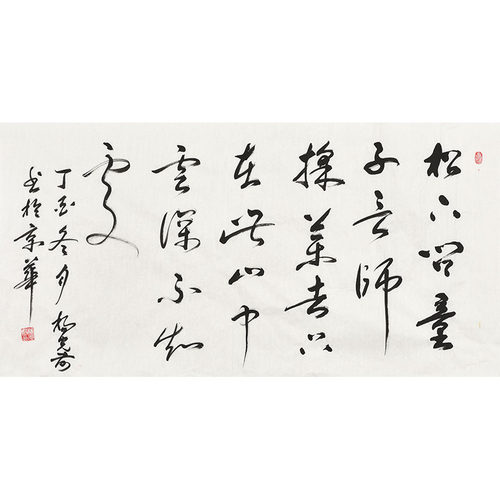 松下问童
子言师
採药去只
在此山中
雲深不知
處
丁酉冬月
书於京華